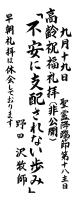 九月十九日
聖霊降臨節第十八主日
高齢祝福礼拝(非公開)
「不安に支配されない歩み」
野田 沢牧師
早朝礼拝は休会しております